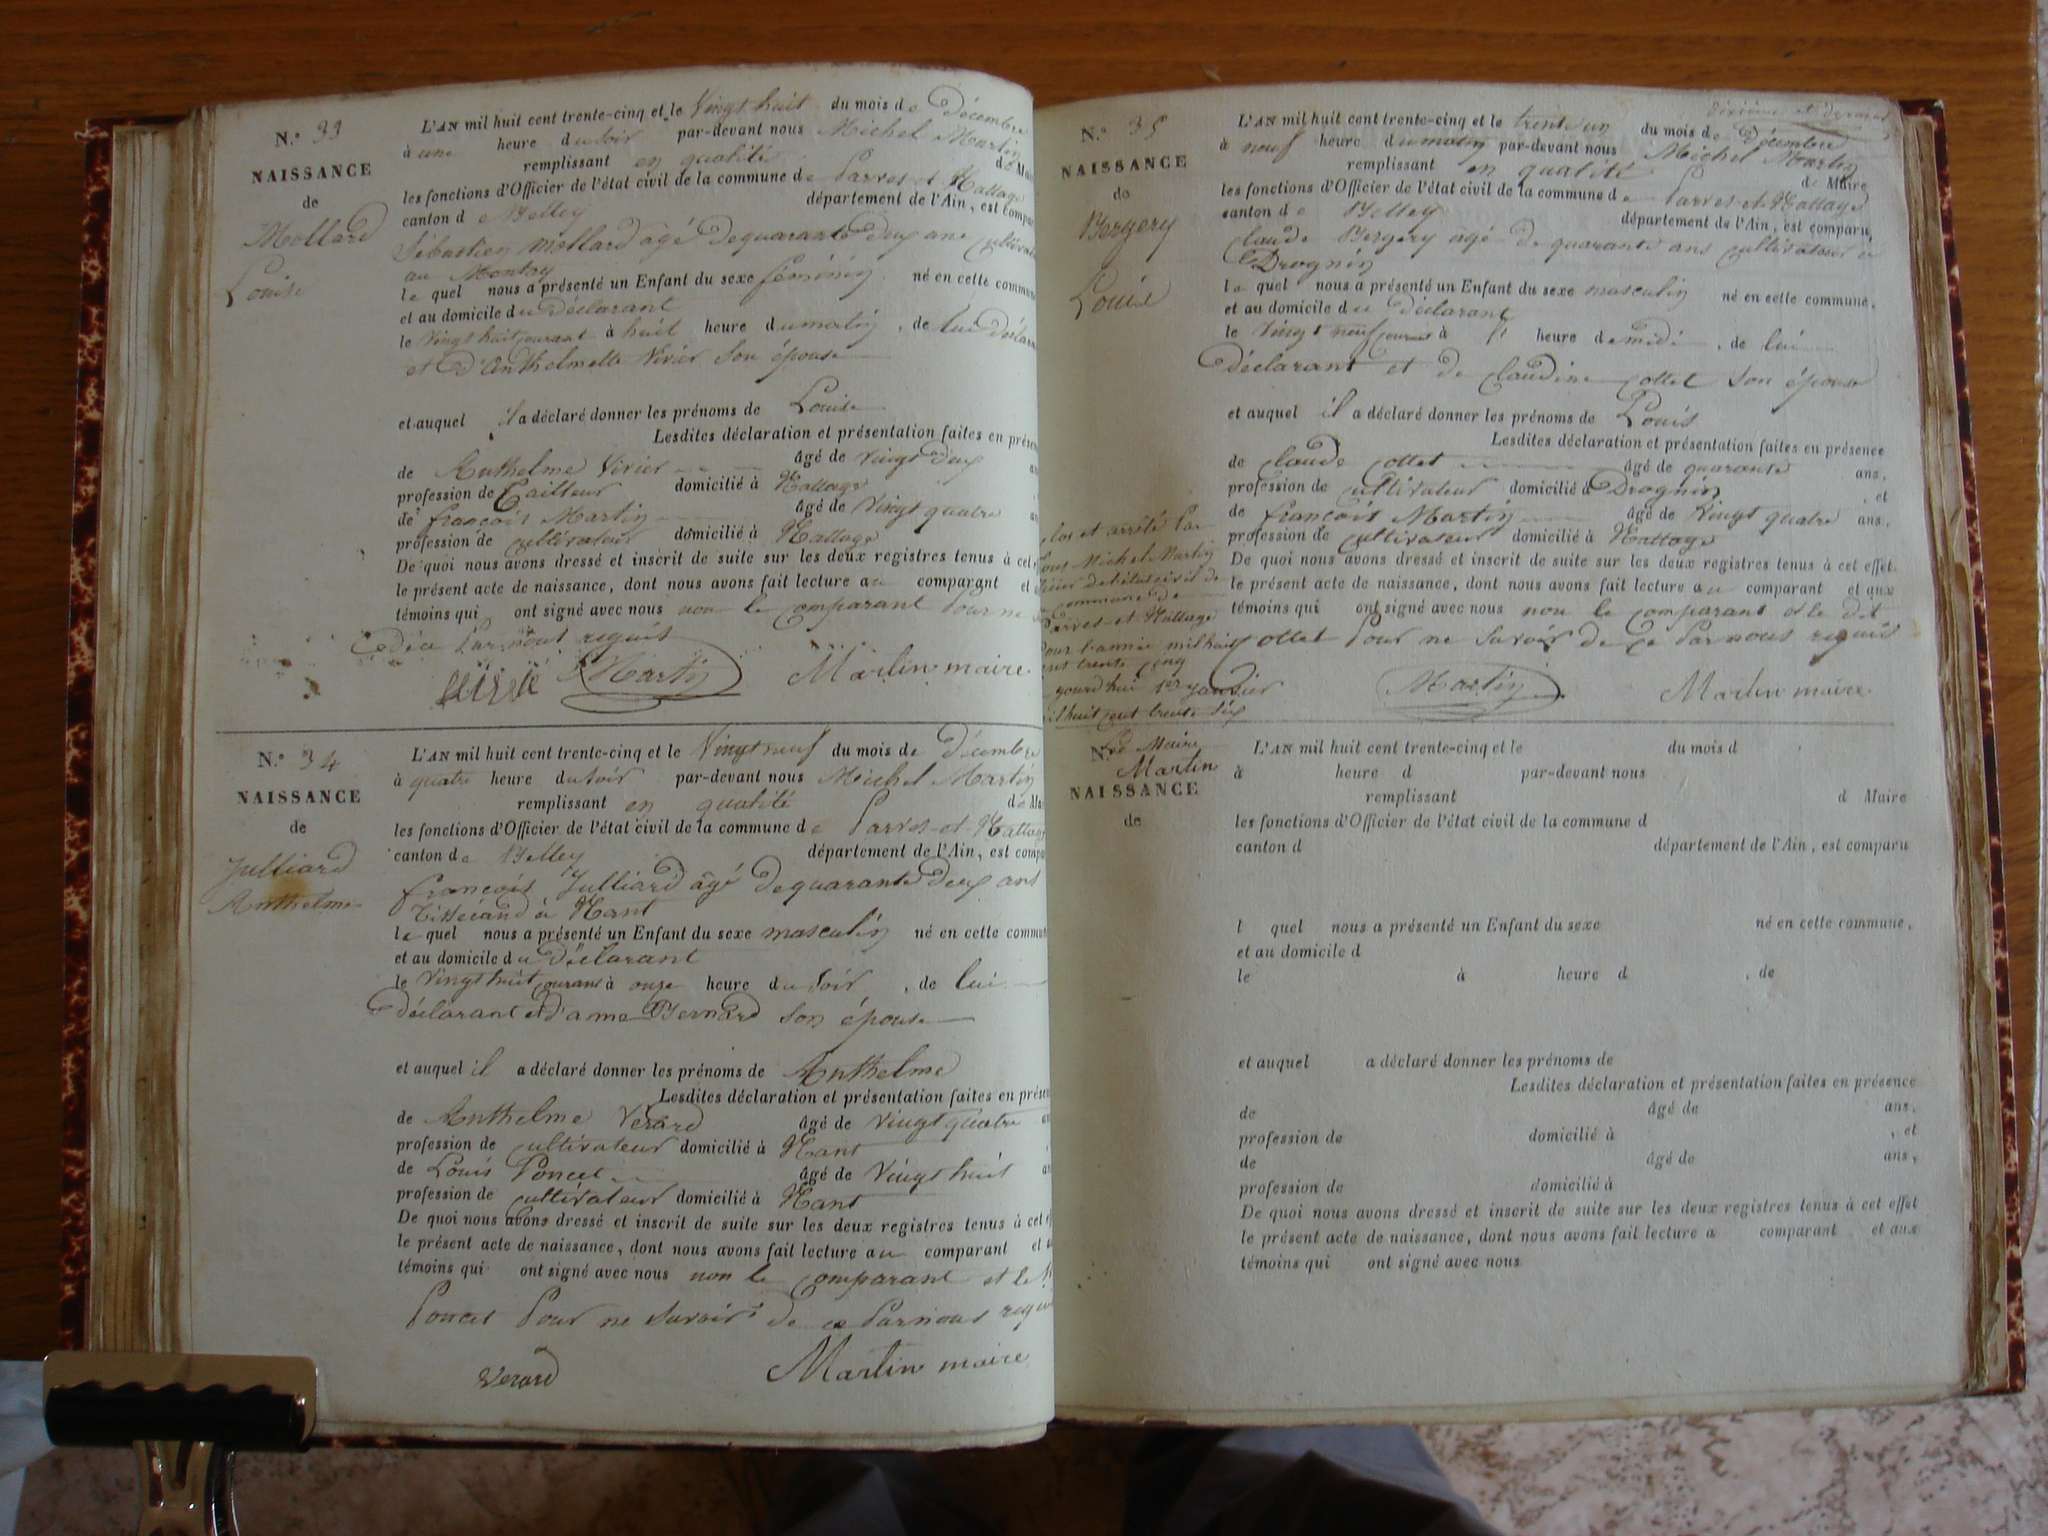 N.º 33
NAISSANCE
de
Mollard
Louise
L'AN mil huit cent trente-cinq et le Vingt huit du mois de Décembre
à une heure du soir par-devant nous Michel Martin
remplissant en qualité de Mai
les fonctions d'Officier de l'état civil de la commune de Parves et Nattage
canton de Belley département de l'Ain, est compar
Sébastien Mollard âgé de quarante deux ans cultiva
au Montay
le quel nous a présenté un Enfant du sexe féminin né en cette commune
et au domicile du Déclarant
le Vingt huit courant à huit heure du matin, de lui Déclara
et d'Anthelmette Vivier son épouse
et auquel il a déclaré donner les prénoms de Louise
Lesdites déclaration et présentation faites en prése
de Anthelme Vivier âgé de Vingt deux an
profession de Tailleur domicilié à Nattage
de françois Martin âgé de Vingt quatre an
profession de cultivateur domicilié à Nattage
De quoi nous avons dressé et inscrit de suite sur les deux registres tenus à cet
le présent acte de naissance, dont nous avons fait lecture au comparant et
témoins qui ont signé avec nous non le comparant Pour ne
de ce Par nous requis
Martin Martin maire
N.º 34
NAISSANCE
de
Julliard
Anthelme
L'AN mil huit cent trente-cinq et le Vingt neuf du mois de Décembre
à quatre heure du soir par-devant nous Michel Martin
remplissant en qualité de Mai
les fonctions d'Officier de l'état civil de la commune de Parves et Nattage
canton de Belley département de l'Ain, est compa
françois Julliard âgé de quarante deux ans
Tisserand à Nant
le quel nous a présenté un Enfant du sexe masculin né en cette commun
et au domicile du Déclarant
le Vingt huit courant à onze heure du soir, de lui
Déclarant et d'anne Bernard son épouse
et auquel il a déclaré donner les prénoms de Anthelme
Lesdites déclaration et présentation faites en prése
de Anthelme Verard âgé de Vingt quatre an
profession de cultivateur domicilié à Nant
de Louis Poncet âgé de Vingt huit an
profession de cultivateur domicilié à Nant
De quoi nous avons dressé et inscrit de suite sur les deux registres tenus à cet
le présent acte de naissance, dont nous avons fait lecture au comparant et
témoins qui ont signé avec nous non le comparant et le
Poncet Pour ne savoir de ce Par nous requi
Verard Martin maire
Dixième et dernier
N.º 35
NAISSANCE
de
Bergery
Louis
L'AN mil huit cent trente-cinq et le trent un du mois de Décembre
à neuf heure du matin par-devant nous Michel Martin
remplissant en qualité de Maire
les fonctions d'Officier de l'état civil de la commune de Parves et Nattage
canton de Belley département de l'Ain, est comparu,
Claude Bergery âgé de quarante ans cultivateur à
Drognin
le quel nous a présenté un Enfant du sexe masculin né en cette commune,
et au domicile du Déclarant
le Vingt neuf courant à heure de midi, de lui
Déclarant et de Claudine Cottet son épouse
et auquel il a déclaré donner les prénoms de Louis
Lesdites déclaration et présentation faites en présence
de Claude Cottet âgé de quarante ans,
profession de cultivateur domicilié à Drognin, et
de françois Martin âgé de Vingt quatre ans,
profession de cultivateur domicilié à Nattage
De quoi nous avons dressé et inscrit de suite sur les deux registres tenus à cet effet
le présent acte de naissance, dont nous avons fait lecture au comparant et aux
témoins qui ont signé avec nous non le comparant et le dit
Cottet Pour ne savoir de ce Par nous requis
Martin Martin maire
Clos et arrêté Par
Nous Michel Martin
officier de l'état civil de
la commune de
Parves et Nattage
Pour l'année mil huit
cent trente cinq
aujourd'hui 1er janvier
mil huit cent trente six
Le Maire
Martin
N.º
NAISSANCE
de
L'AN mil huit cent trente-cinq et le du mois d
à heure d par-devant nous
remplissant d Maire
les fonctions d'Officier de l'état civil de la commune d
canton d département de l'Ain, est comparu
l quel nous a présenté un Enfant du sexe né en cette commune,
et au domicile d
le à heure d , de
et auquel a déclaré donner les prénoms de
Lesdites déclaration et présentation faites en présence
de âgé de ans,
profession de domicilié à , et
de âgé de ans,
profession de domicilié à
De quoi nous avons dressé et inscrit de suite sur les deux registres tenus à cet effet
le présent acte de naissance, dont nous avons fait lecture a comparant et aux
témoins qui ont signé avec nous